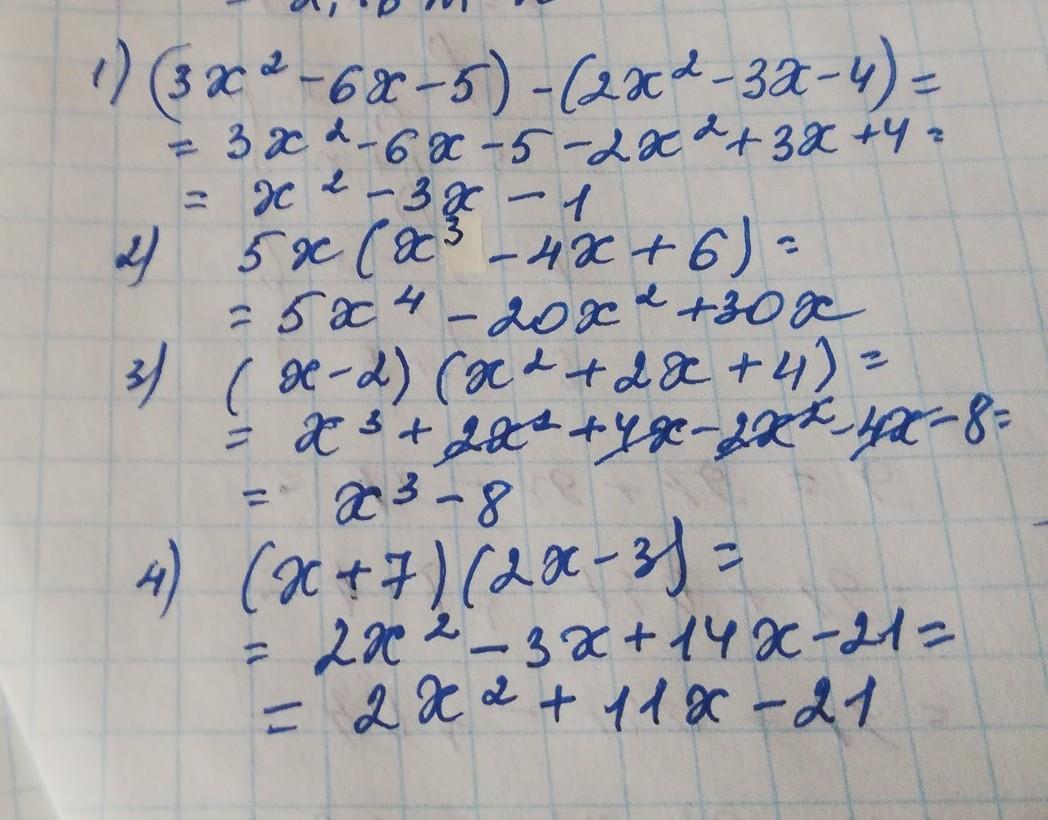 1) (3x² - 6x - 5) - (2x² - 3x - 4) =
= 3x² - 6x - 5 - 2x² + 3x + 4 =
= x² - 3x - 1
2) 5x (x³ - 4x + 6) =
= 5x⁴ - 20x² + 30x
3) (x - 2) (x² + 2x + 4) =
= x³ + 2x² + 4x - 2x² - 4x - 8 =
= x³ - 8
4) (x + 7) (2x - 3) =
= 2x² - 3x + 14x - 21 =
= 2x² + 11x - 21